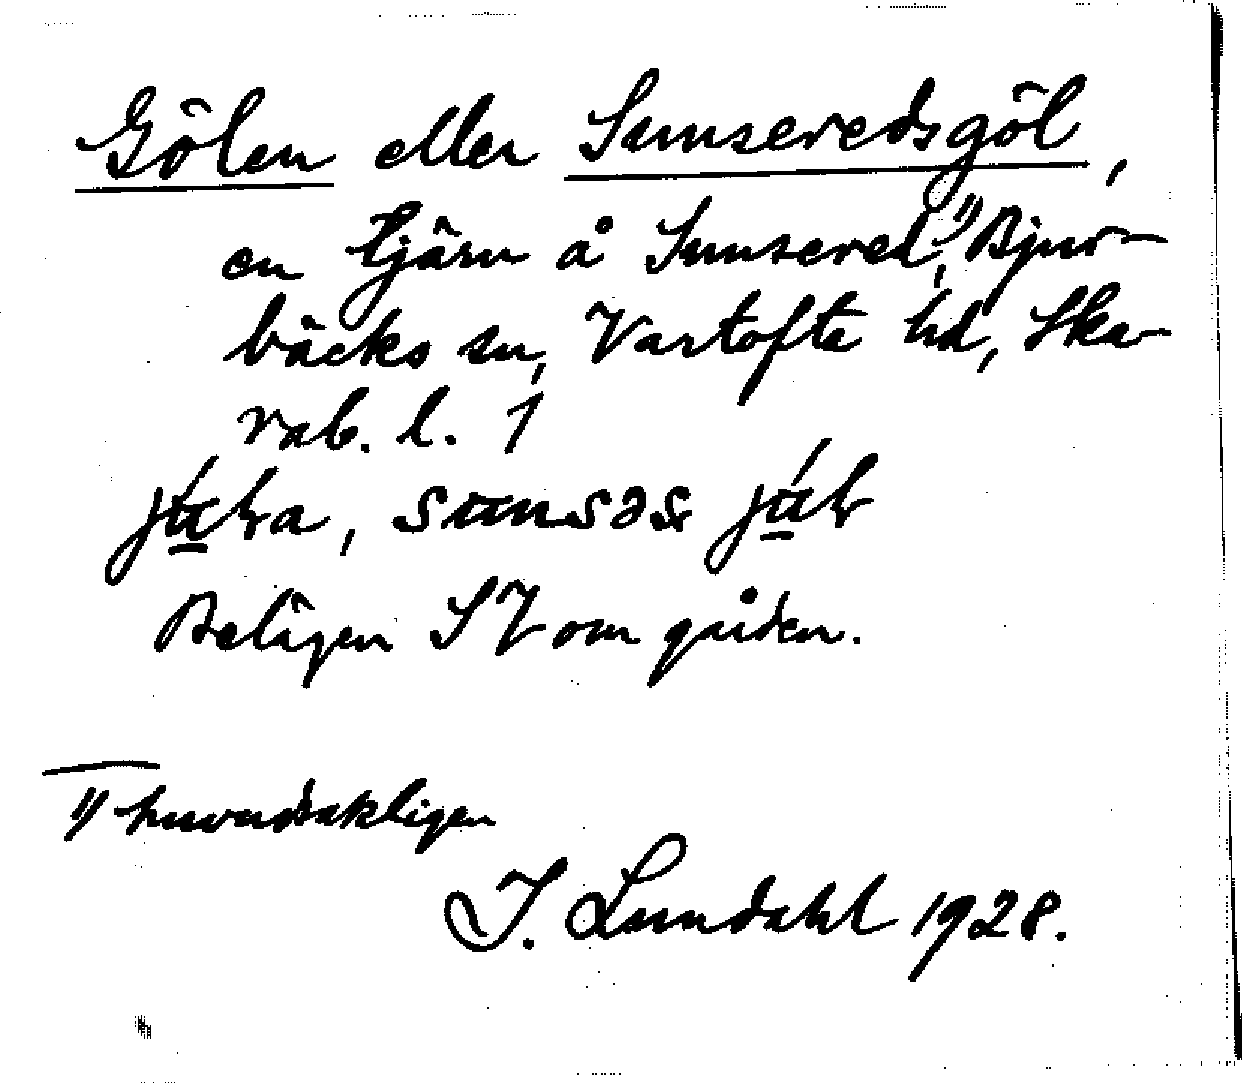 Gölen eller Sunseredsgöl,
en tjärn å Sunsered,¹⁾ Bjur-
bäcks sn, Vartofte hd, Ska-
rab. l. 1
Belägen SV om gården.
1) huvudsakligen
I. Lundahl 1928.